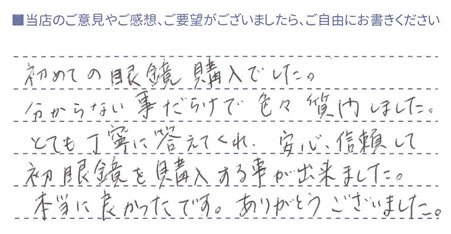 ■当店のご意見やご感想、ご要望がございましたら、ご自由にお書きください
初めての眼鏡購入でした。
分からない事だらけで色々質問しました。
とても丁寧に答えてくれ、安心、信頼して
初眼鏡を購入する事が出来ました。
本当に良かったです。ありがとうございました。